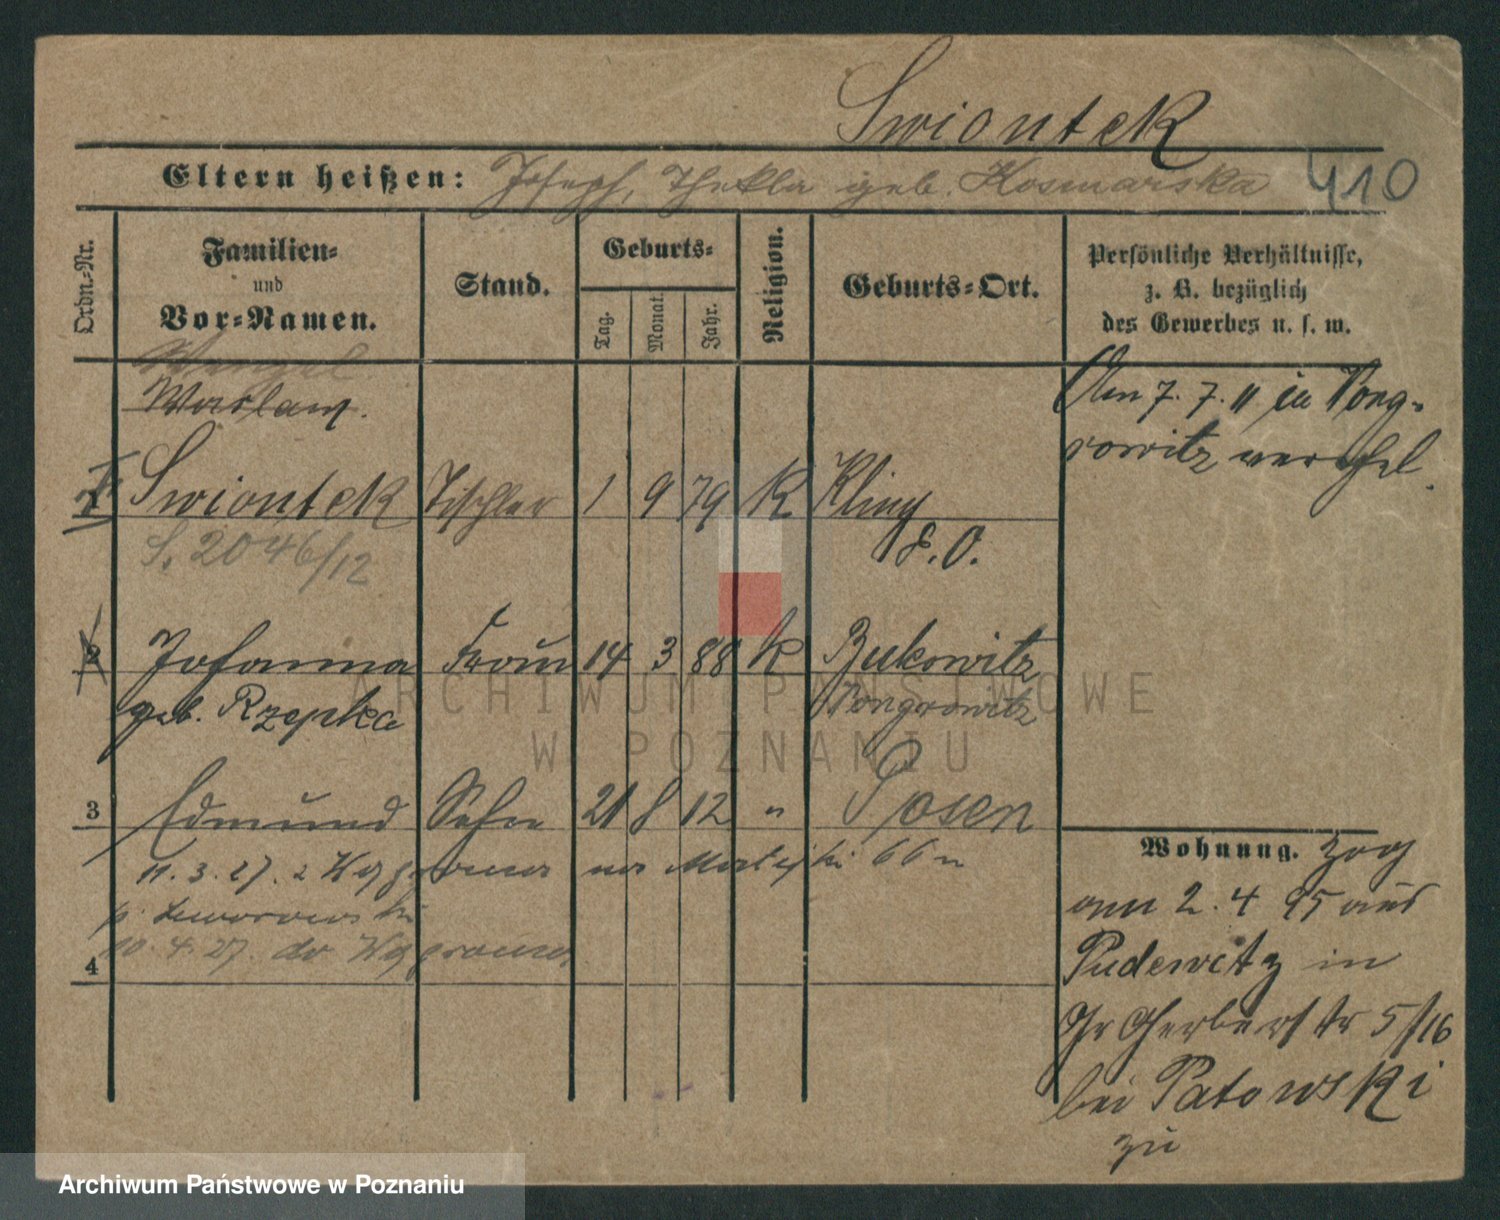 Swiontek
Eltern heißen: Joseph, Thekla geb. Kosmarska
410
Ordn.-Nr.
Familien-
und
Vor-Namen.
Stand.
Geburts-
Tag.
Monat.
Jahr.
Religion.
Geburts-Ort.
Persönliche Verhältnisse,
z. B. bezüglich
des Gewerbes u. s. w.
Wenzel
Waclaw.
1 Swiontek Tischler 1 9 79 K Kling
S. 2046/12
d. O.
Am 7. 7. 11 in Wong-
rowitz verehel.
2 Johanna Frau 14 3 88 K Bukowitz
geb. Rzepka Wongrowitz
3 Edmund Sohn 21 8 12 " Posen
11. 3. 27.
10. 4. 27.
4
Wohnung. zog
am 2. 4 95 aus
Pudewitz in
Gr Gerberstr 5/16
bei Patowski
zu
ARCHIWUM PAŃSTWOWE
W POZNANIU
Archiwum Państwowe w Poznaniu